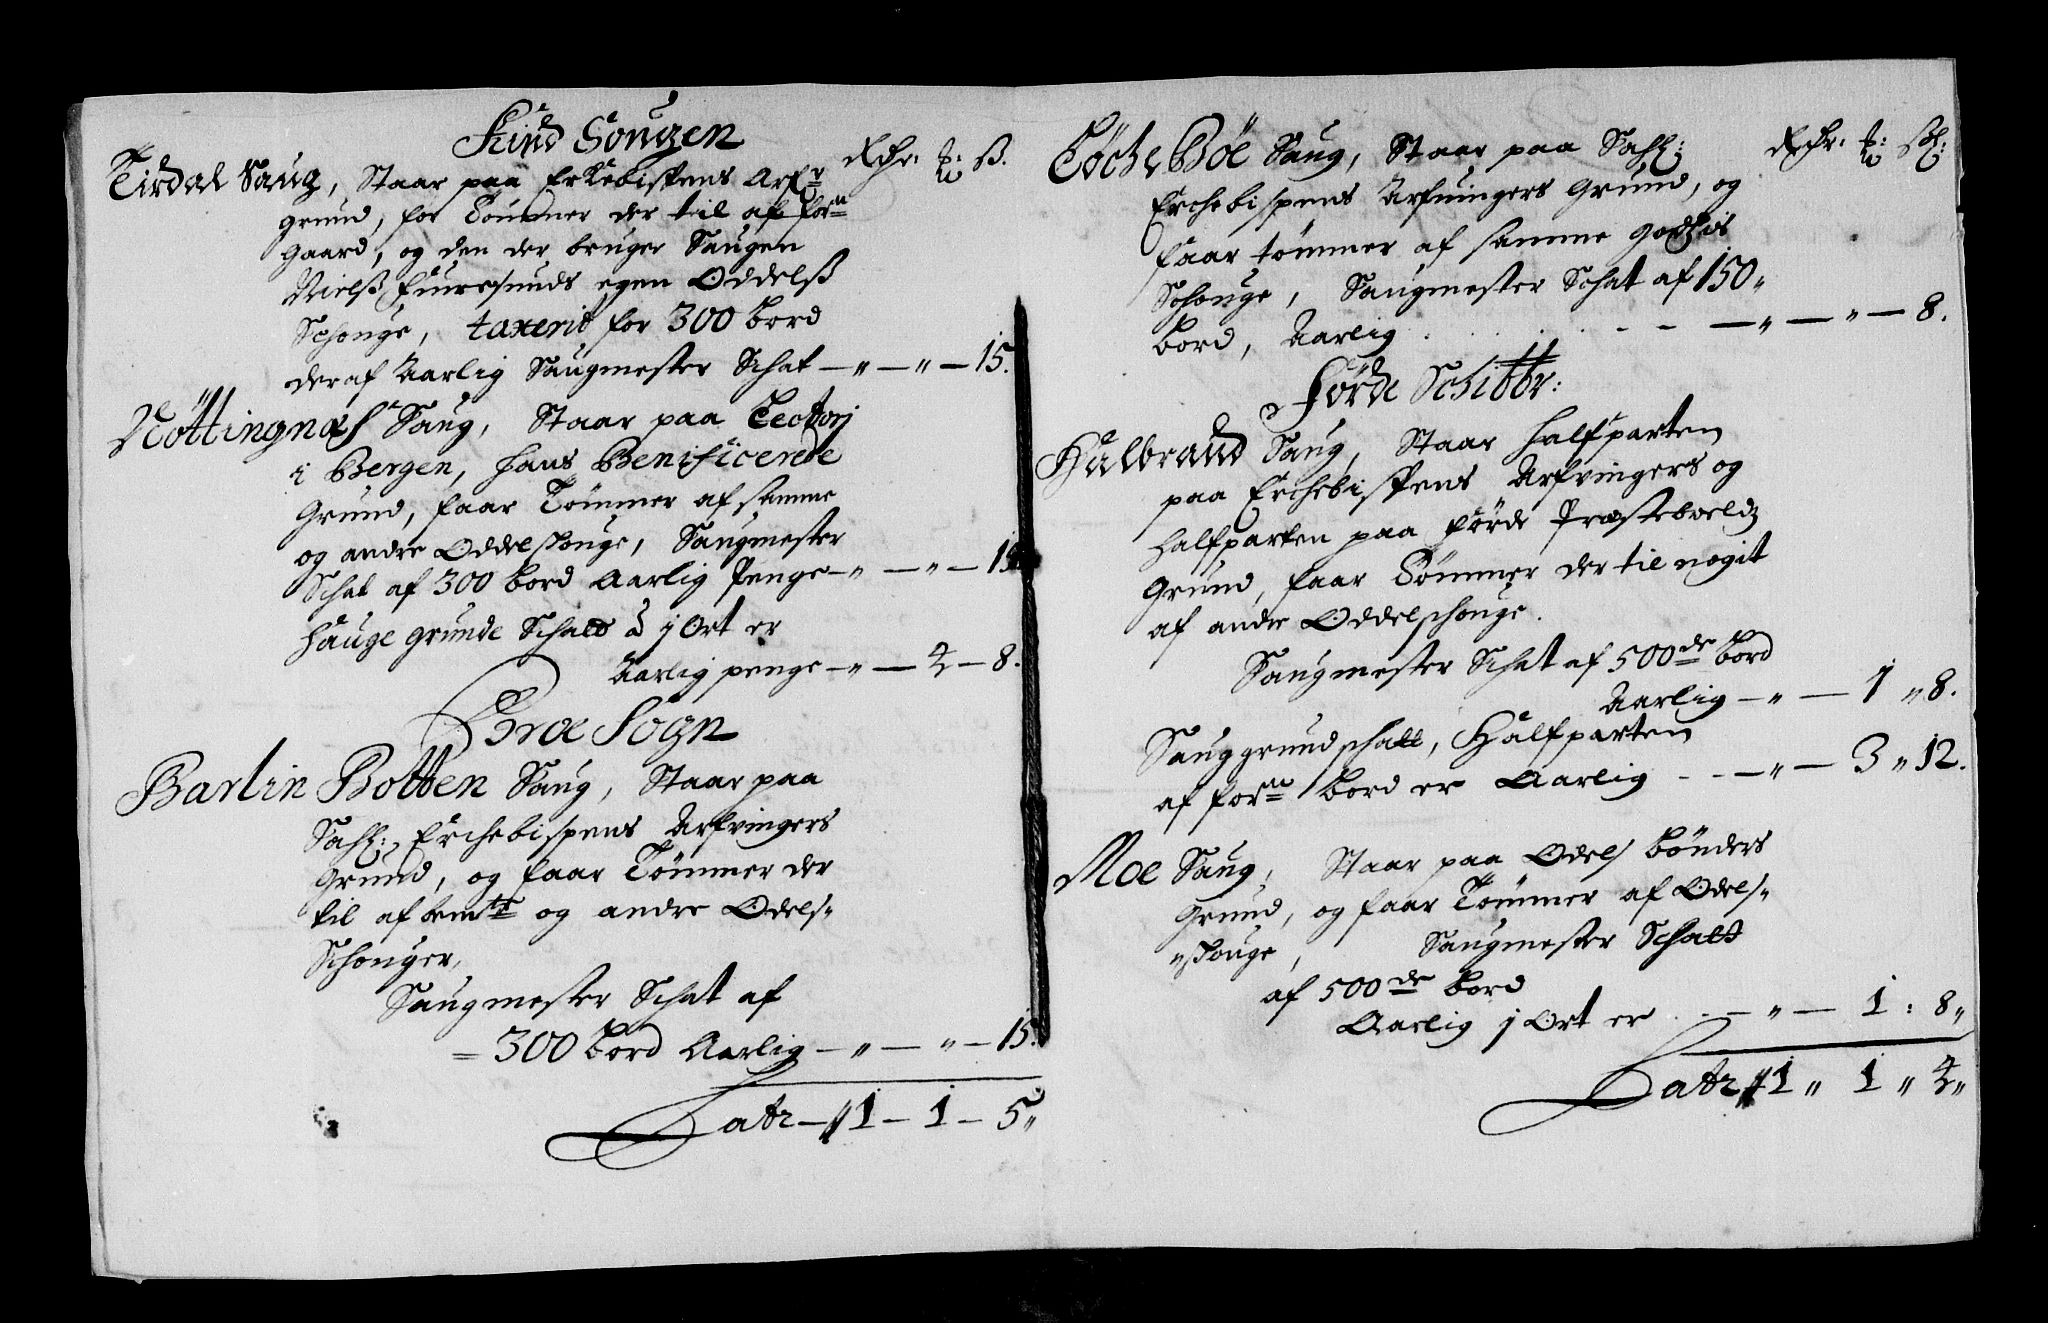 Kind Sougen
Rdr. ℔: ß.
Tirdal Saug, Staar paa Erkebispens Arfr
grund, for Tömmer der til af forn
Gaard, og den der bruger Saugen
Nielß Fuuresunds egen Oddelß
Schouge, taxerit for 300 bord
deraf Aarlig Saugmester Schat — „ — „ — 15.
Nöttingnæs Saug, Staar paa Lectorj
i Bergen, hans Benificerede
Grund, faar Tömmer af samme
og andre Oddelskouge, Saugmester
Schat af 300 bord Aarlig Penge — „ — „ — 15
Hauge grunde Schatt à j Ort er
Aarlig penge — „ — 4 — 8.
Broe Sogn
Barlin Botten Saug, Staar paa
Sahl: Erchebispens Arfvingers
Grund, og faar Tömmer der
til af bemte og andre Odels„
Schouger,
Saugmester Schat af
= 300 bord Aarlig — „ — „ — 15.
Latr — 1 — 1 — 5„
Rdr. ℔: ßl:
Töche Böe Saug, Staar paa Sahl:
Erchebispens Arfuingers Grund, og
faar tömmer af samme godzis
Schouge, Saugmester Schat af 150„
bord, Aarlig . . . - - — „ — „ — 8.
Förde Schibbr:
Halbrand Saug, Staar halfparten
paa Erchebispens Arfvingers og
halfparten paa Förde Præsteboeldz
Grund, faar Tömmer der til nogit
af andre Oddelschouge.
Saugmester Schat af 500de bord
Aarlig — „ — 1 „ 8.
Sauggrundschatt, Halfparten
af forne bord er Aarlig - - — „ — 3 „ 12.
Moe Saug, Staar paa Odels bönders
Grund, og faar Tömmer af Odels„
„skouge, Saugmester Schatt
af 500de bord
Aarlig j Ort er . - — „ — 1 : 8„
Latr 1 „ 1 „ 4„